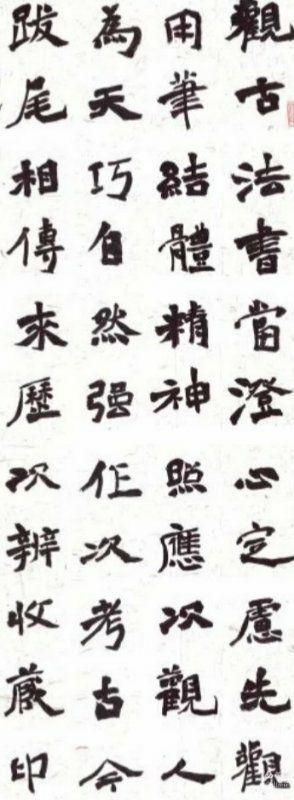 觀古法書當澄心定慮先觀
用筆結體精神照應次觀人
為天巧自然强作次考古今
跋尾相傳來歷次辨收藏印